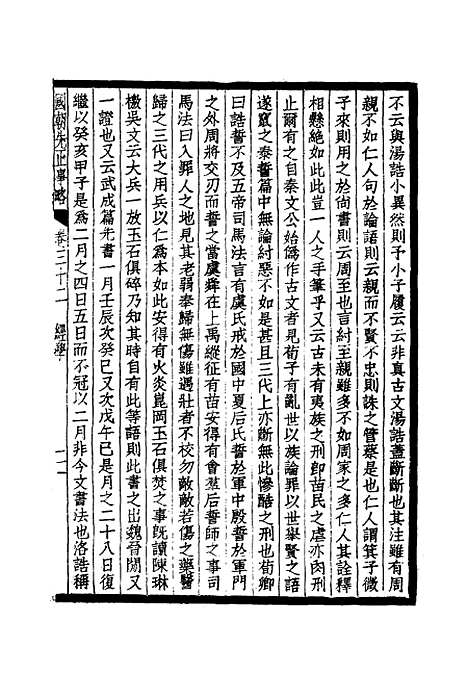 不云與湯誥小異然則予小子履云云非真古文湯誥盡斷斷也其注雖有周
親不如仁人句於論語則云親而不賢不忠則誅之管蔡是也仁人謂箕子微
子來則用之於尙書則云周至也言紂至親雖多不如周家之多仁人其詮釋
相懸絕如此此豈一人之手筆乎又云古未有夷族之刑卽苗民之虐亦肉刑
止爾有之自秦文公始僞作古文者見荀子有亂世以族論罪以世舉賢之語
遂竄之泰誓篇中無論紂惡不如是甚且三代上亦斷無此慘酷之刑也荀卿
曰誥誓不及五帝司馬法言有虞氏戒於國中夏后氏誓於軍中殷誓於軍門
之外周將交刃而誓之當虞舜在上禹縱征有苗安得有會羣后誓師之事司
馬法曰入罪人之地見其老弱奉歸無傷雖遇壯者不校勿敵敵若傷之藥醫
歸之三代之用兵以仁為本如此安得有火炎崑岡玉石俱焚之事旣讀陳琳
檄吳文云大兵一放玉石俱碎乃知其時自有此等語則此書之出魏晉閒又
一證也又云武成篇先書一月壬辰次癸巳又次戊午已是月之二十八日復
繼以癸亥甲子是爲二月之四日五日而不冠以二月非今文書法也洛誥稱
國朝先正事略 卷三十二 經學 一一